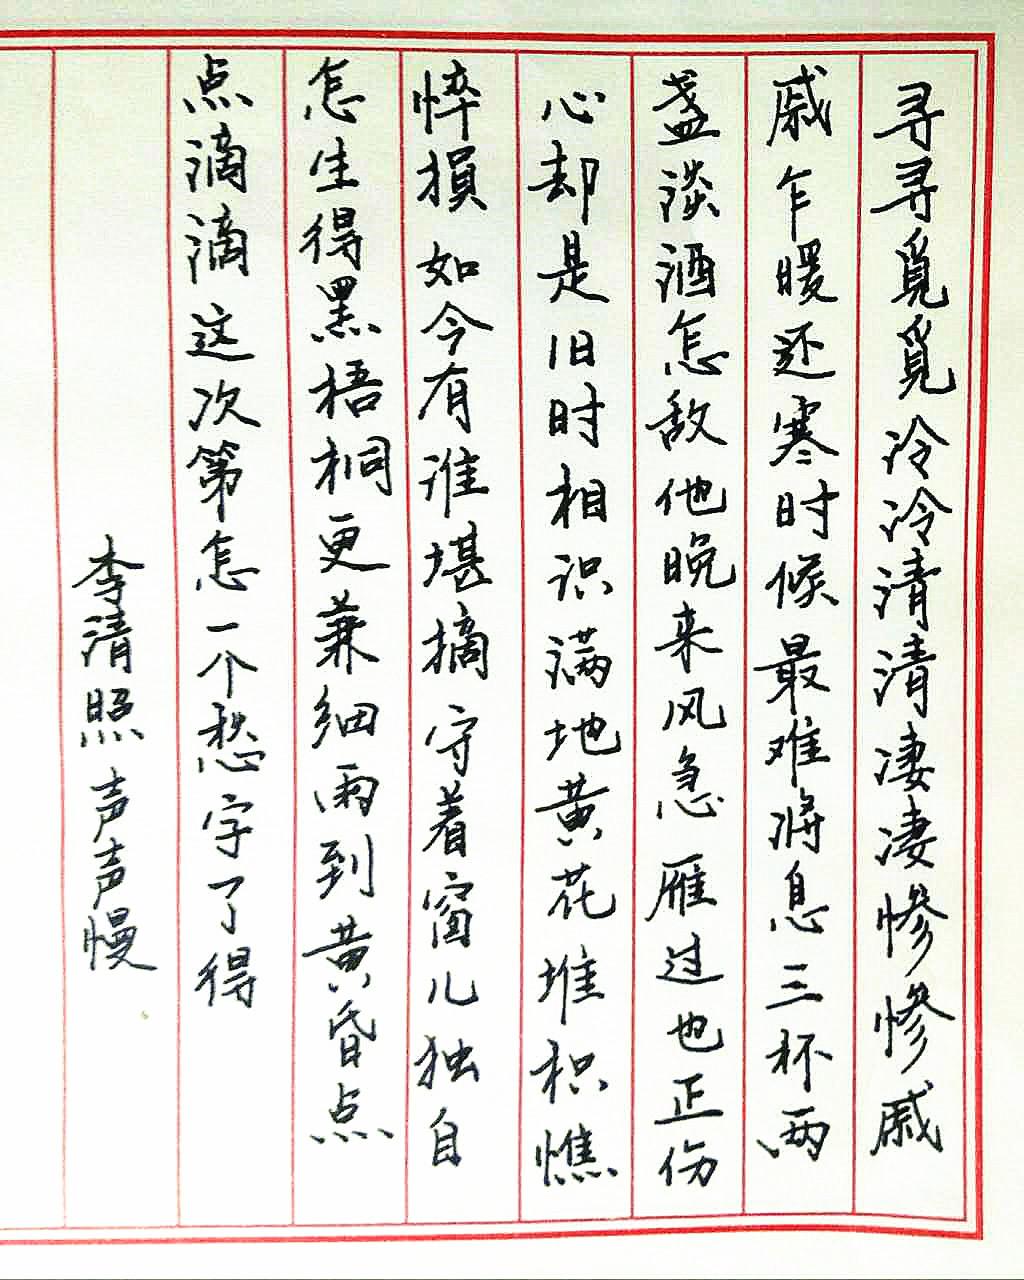 寻寻觅觅冷冷清清凄凄惨惨戚
戚乍暖还寒时候最难将息三杯两
盏淡酒怎敌他晚来风急雁过也正伤
心却是旧时相识满地黄花堆积憔
悴損如今有谁堪摘守着窗儿独自
怎生得黑梧桐更兼细雨到黄昏点
点滴滴这次第怎一个愁字了得
李清照声声慢